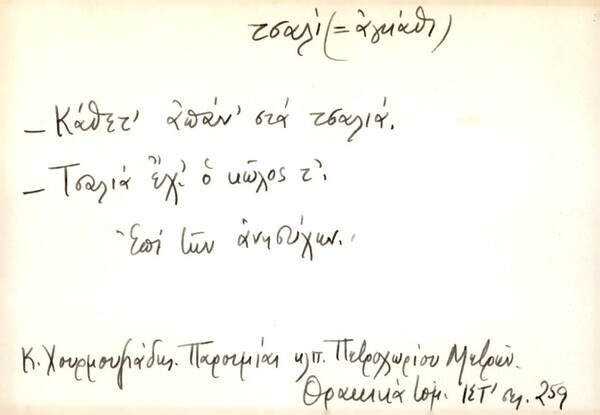 τσαλὶ (= ἀγκάθι)
– Κάθετ' ἀπάν' στά τσαλιά.
– Τσαλιά ἔχ' ὁ κῶλος τ'.
Ἐπί τῶν ἀνησύχων.
Κ. Χουρμουζιάδης. Παροιμίαι κλπ. Πετροχωρίου Μετρῶν.
Θρακικά τομ. ΙΣΤ' σελ. 259